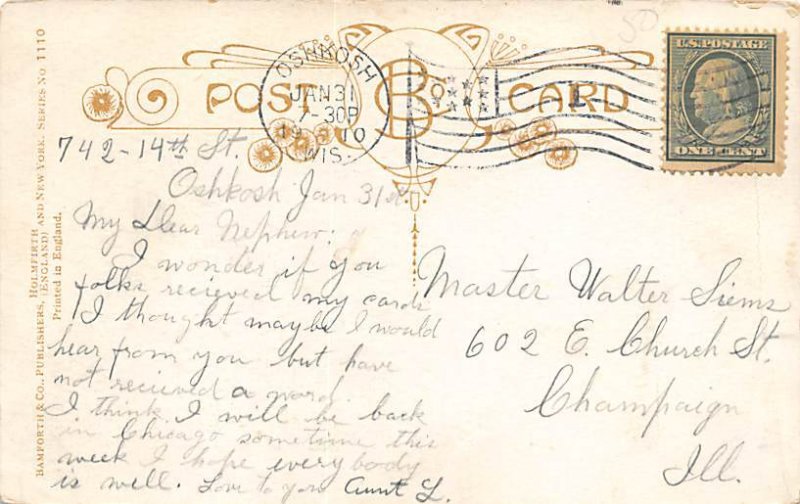 BAMFORTH & CO., PUBLISHERS, HOLMFIRTH
(ENGLAND) AND NEW YORK. SERIES NO 1110
Printed in England.
POST CARD
B Co
OSHKOSH
JAN 31
7-30P
1910
WIS.
U.S. POSTAGE
ONE CENT
742-14th St.
Oshkosh Jan 31st
My Dear Nephew:
I wonder if you
folks recieved my cards
I thought maybe I would
hear from you but have
not recieved a word.
I think I will be back
in Chicago sometime this
week I hope everybody
is well. Love to you Aunt L.
Master Walter Siems
602 E. Church St.
Champaign
Ill.